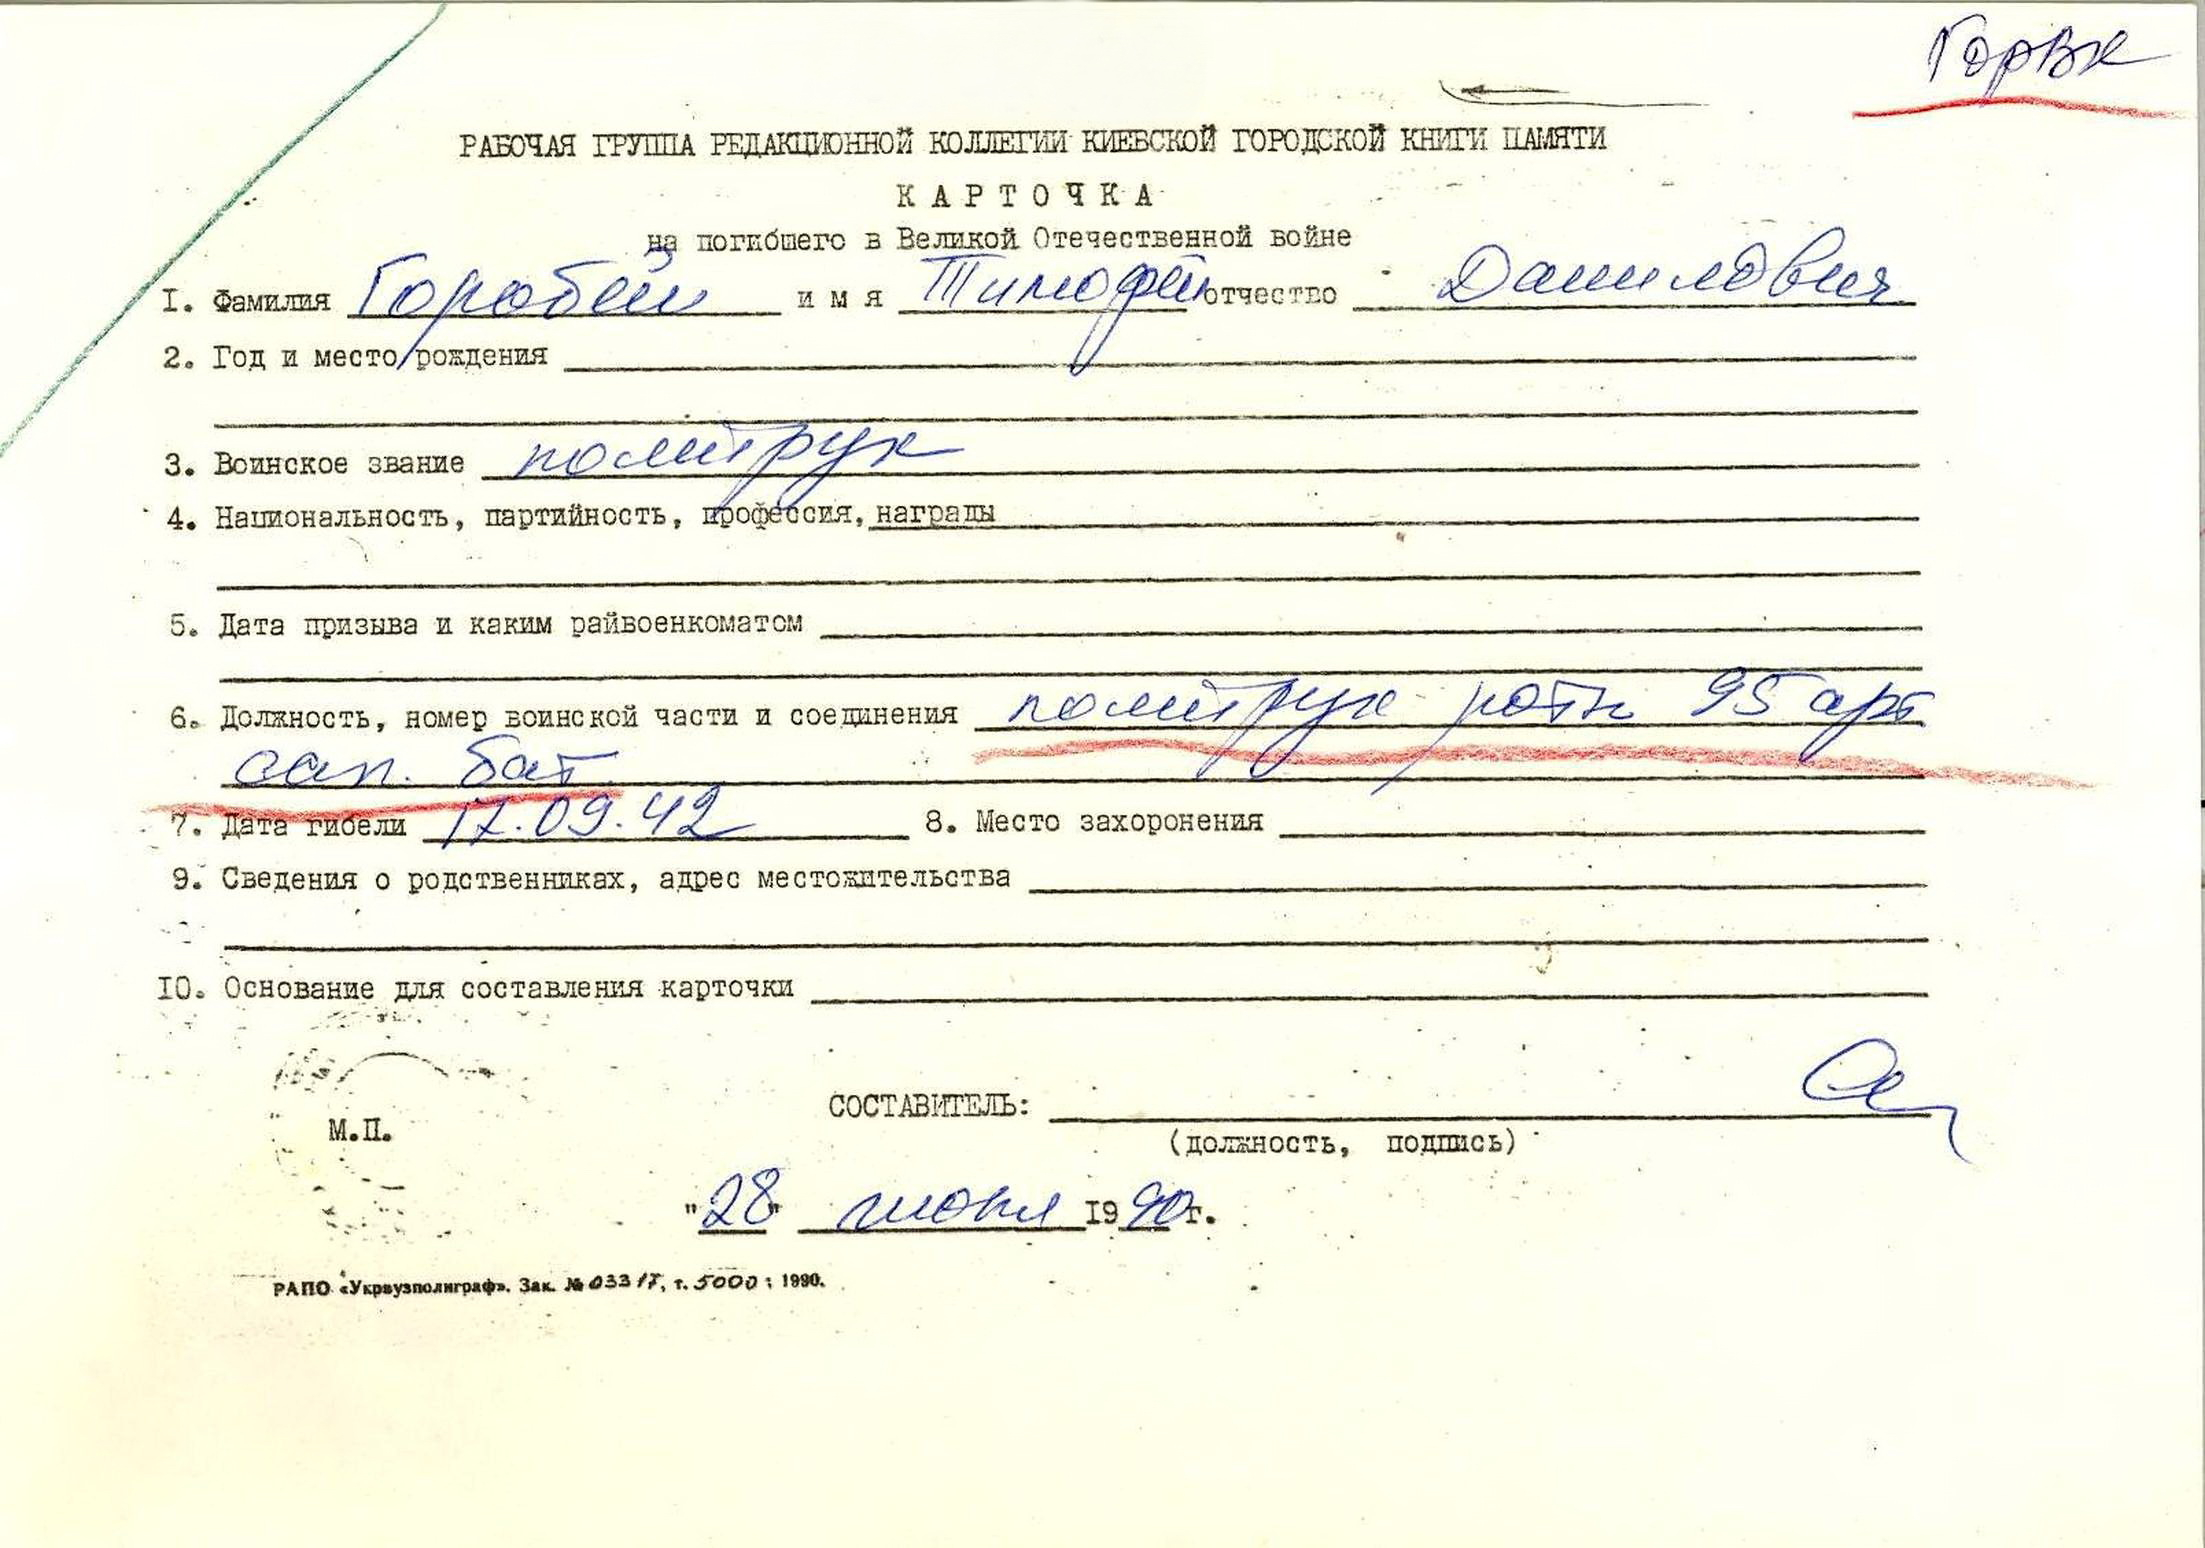 ГорВК
РАБОЧАЯ ГРУППА РЕДАКЦИОННОЙ КОЛЛЕГИИ КИЕВСКОЙ ГОРОДСКОЙ КНИГИ ПАМЯТИ
КАРТОЧКА
на погибшего в Великой Отечественной войне
I. Фамилия Горобей имя Тимофей отчество Данилович
2. Год и место рождения
3. Воинское звание политрук
4. Национальность, партийность, профессия, награды
5. Дата призыва и каким райвоенкоматом
6. Должность, номер воинской части и соединения политрук роты 95 арт
сап. бат
7. Дата гибели 17.09.42 8. Место захоронения
9. Сведения о родственниках, адрес местожительства
IO. Основание для составления карточки
СОСТАВИТЕЛЬ:
М.П.
(должность, подпись)
"28" июня 1990 г.
РАПО «Укрвузполиграф». Зак. № 03317, т. 5000 : 1990.